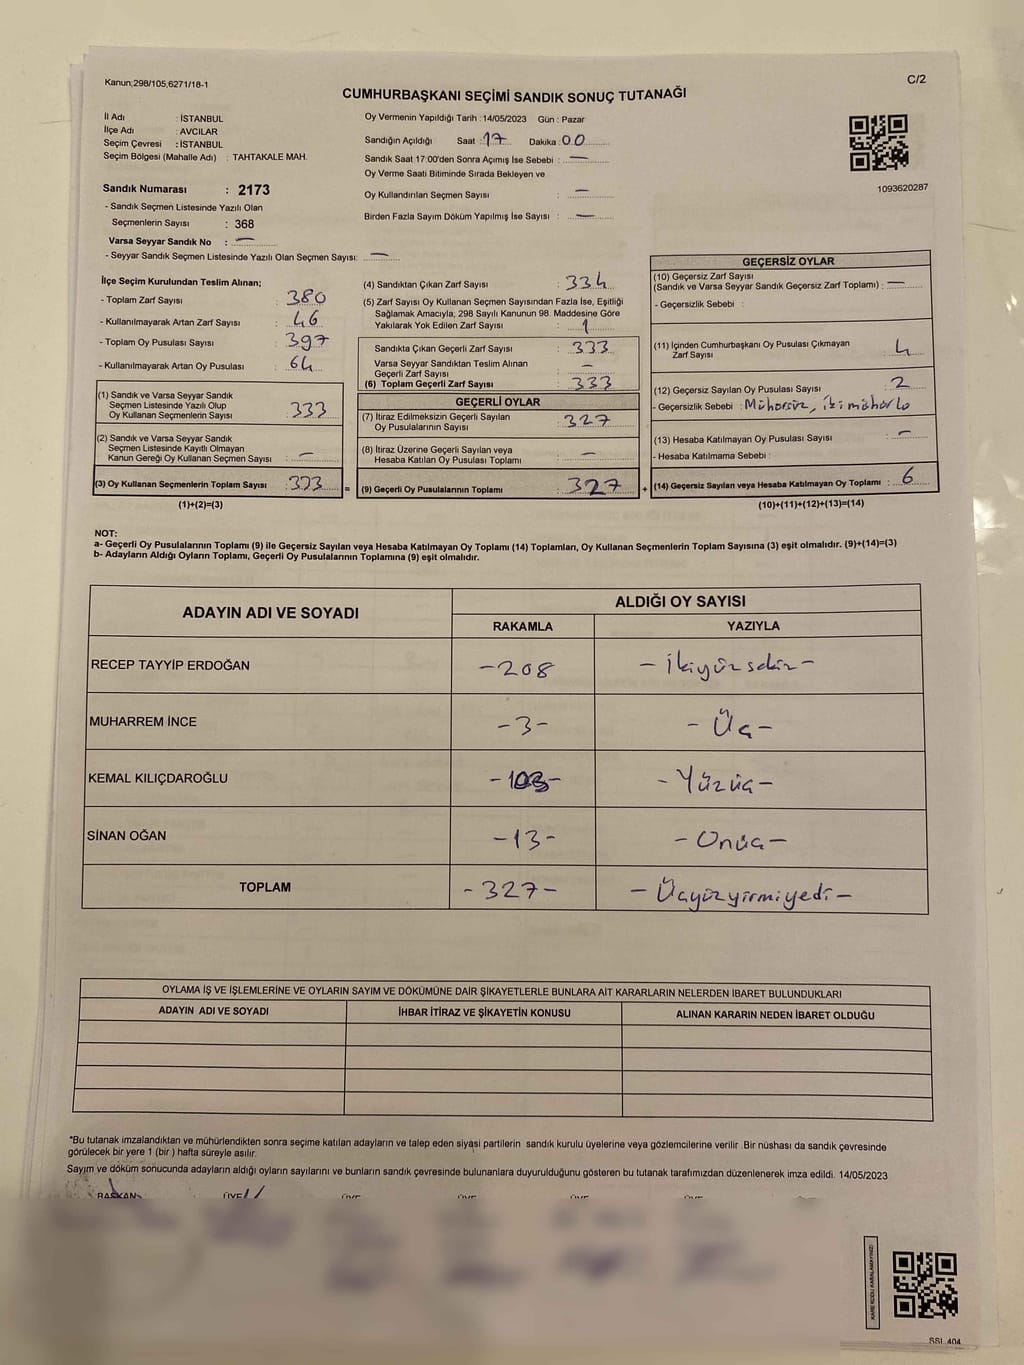 Kanun;298/105,6271/18-1
C/2
CUMHURBAŞKANI SEÇİMİ SANDIK SONUÇ TUTANAĞI
İl Adı : İSTANBUL
İlçe Adı : AVCILAR
Seçim Çevresi : İSTANBUL
Seçim Bölgesi (Mahalle Adı) : TAHTAKALE MAH.
Sandık Numarası : 2173
- Sandık Seçmen Listesinde Yazılı Olan
Seçmenlerin Sayısı : 368
Varsa Seyyar Sandık No : —
- Seyyar Sandık Seçmen Listesinde Yazılı Olan Seçmen Sayısı: —
Oy Vermenin Yapıldığı Tarih : 14/05/2023 Gün : Pazar
Sandığın Açıldığı Saat : 17 Dakika : 00
Sandık Saat 17:00'den Sonra Açımış İse Sebebi : —
Oy Verme Saati Bitiminde Sırada Bekleyen ve
Oy Kullandırılan Seçmen Sayısı : —
Birden Fazla Sayım Döküm Yapılmış İse Sayısı : —
1093620287
İlçe Seçim Kurulundan Teslim Alınan;
- Toplam Zarf Sayısı : 380
- Kullanılmayarak Artan Zarf Sayısı : 46
- Toplam Oy Pusulası Sayısı : 397
- Kullanılmayarak Artan Oy Pusulası : 64
(1) Sandık ve Varsa Seyyar Sandık
Seçmen Listesinde Yazılı Olup
Oy Kullanan Seçmenlerin Sayısı : 333
(2) Sandık ve Varsa Seyyar Sandık
Seçmen Listesinde Kayıtlı Olmayan
Kanun Gereği Oy Kullanan Seçmen Sayısı : —
(3) Oy Kullanan Seçmenlerin Toplam Sayısı : 333 =
(1)+(2)=(3)
(4) Sandıktan Çıkan Zarf Sayısı : 334
(5) Zarf Sayısı Oy Kullanan Seçmen Sayısından Fazla İse, Eşitliği
Sağlamak Amacıyla; 298 Sayılı Kanunun 98. Maddesine Göre
Yakılarak Yok Edilen Zarf Sayısı : 1
Sandıkta Çıkan Geçerli Zarf Sayısı : 333
Varsa Seyyar Sandıktan Teslim Alınan
Geçerli Zarf Sayısı : —
(6) Toplam Geçerli Zarf Sayısı : 333
GEÇERLİ OYLAR
(7) İtiraz Edilmeksizin Geçerli Sayılan
Oy Pusulalarının Sayısı : 327
(8) İtiraz Üzerine Geçerli Sayılan veya
Hesaba Katılan Oy Pusulası Toplamı : —
(9) Geçerli Oy Pusulalarının Toplamı : 327 +
GEÇERSİZ OYLAR
(10) Geçersiz Zarf Sayısı
(Sandık ve Varsa Seyyar Sandık Geçersiz Zarf Toplamı) : —
- Geçersizlik Sebebi :
(11) İçinden Cumhurbaşkanı Oy Pusulası Çıkmayan
Zarf Sayısı : 4
(12) Geçersiz Sayılan Oy Pusulası Sayısı : 2
- Geçersizlik Sebebi : Mühürsüz, iki mühürlü
(13) Hesaba Katılmayan Oy Pusulası Sayısı : —
- Hesaba Katılmama Sebebi :
(14) Geçersiz Sayılan veya Hesaba Katılmayan Oy Toplamı : 6
(10)+(11)+(12)+(13)=(14)
NOT:
a- Geçerli Oy Pusulalarının Toplamı (9) ile Geçersiz Sayılan veya Hesaba Katılmayan Oy Toplamı (14) Toplamları, Oy Kullanan Seçmenlerin Toplam Sayısına (3) eşit olmalıdır. (9)+(14)=(3)
b- Adayların Aldığı Oyların Toplamı, Geçerli Oy Pusulalarının Toplamına (9) eşit olmalıdır.
ADAYIN ADI VE SOYADI
ALDIĞI OY SAYISI
RAKAMLA YAZIYLA
RECEP TAYYİP ERDOĞAN -208 - İkiyüzsekiz -
MUHARREM İNCE -3- - Üç -
KEMAL KILIÇDAROĞLU -103- - Yüzüç -
SİNAN OĞAN -13- - Onüç -
TOPLAM -327- - Üçyüzyirmiyedi -
OYLAMA İŞ VE İŞLEMLERİNE VE OYLARIN SAYIM VE DÖKÜMÜNE DAİR ŞİKAYETLERLE BUNLARA AİT KARARLARIN NELERDEN İBARET BULUNDUKLARI
ADAYIN ADI VE SOYADI İHBAR İTİRAZ VE ŞİKAYETİN KONUSU ALINAN KARARIN NEDEN İBARET OLDUĞU
*Bu tutanak imzalandıktan ve mühürlendikten sonra seçime katılan adayların ve talep eden siyasi partilerin sandık kurulu üyelerine veya gözlemcilerine verilir. Bir nüshası da sandık çevresinde
görülecek bir yere 1 (bir ) hafta süreyle asılır.
Sayım ve döküm sonucunda adayların aldığı oyların sayılarını ve bunların sandık çevresinde bulunanlara duyurulduğunu gösteren bu tutanak tarafımızdan düzenlenerek imza edildi. 14/05/2023
BAŞKAN ÜYE ÜYE ÜYE ÜYE ÜYE
KARE KODU KARALAMAYINIZ!
SSI_404